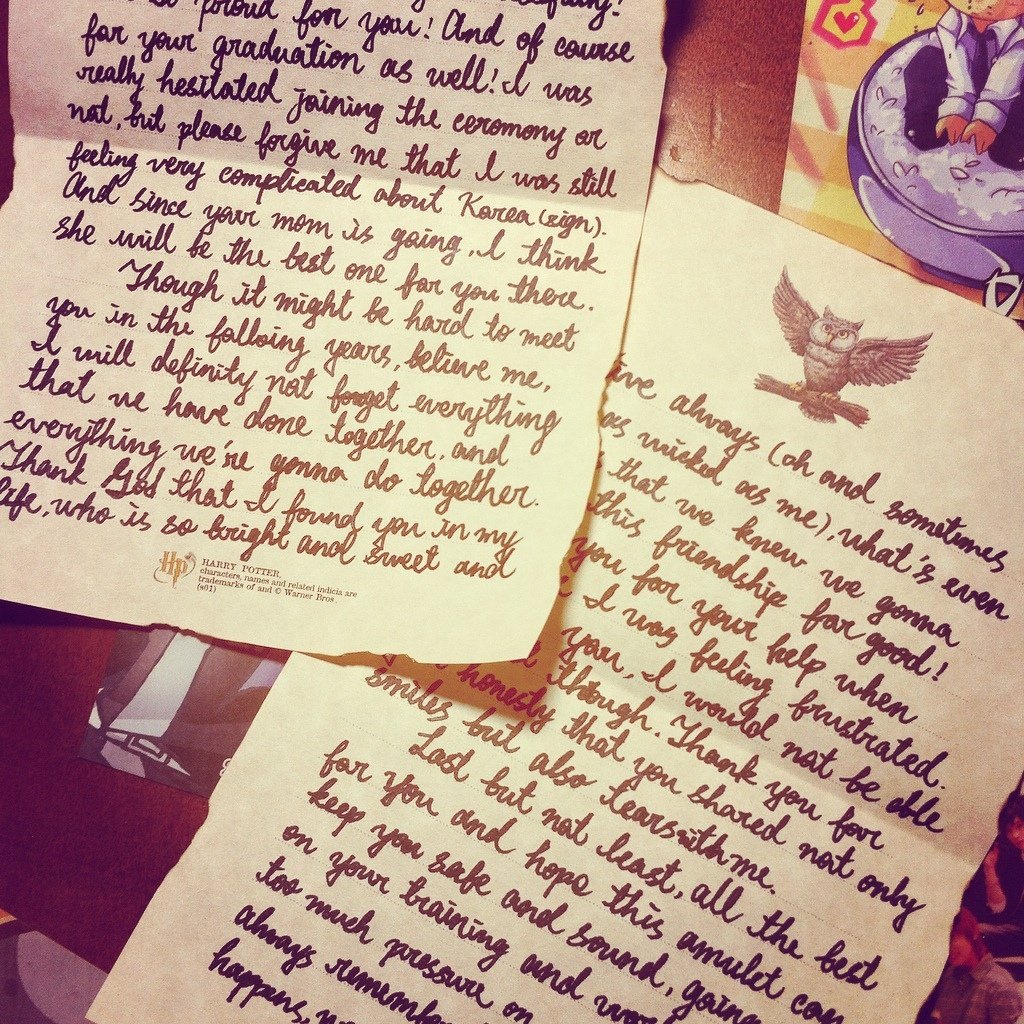 proud for you! And of course
for your graduation as well! I was
really hesitated joining the ceromony or
not, but please forgive me that I was still
feeling very complicated about Korea (sign).
And since your mom is going, I think
she will be the best one for you there.
Though it might be hard to meet
you in the follwing years, believe me,
I will definity not forget everything
that we have done together, and
everything we're gonna do together.
Thank God that I found you in my
life, who is so bright and sweet and
HP
HARRY POTTER,
characters, names and related indicia are
trademarks of and © Warner Bros
(s01)
always (oh and sometimes
as wicked as me), what's even
that we knew we gonna
this friendship for good!
you for your help when
I was feeling frustrated.
you, I would not be able
though. Thank you for
honesty that you shared not only
smiles but also tears with me.
Last but not least, all the best
for you and hope this amulet can
keep you safe and sound, going
on your training and
too much pressure on
always
happens,